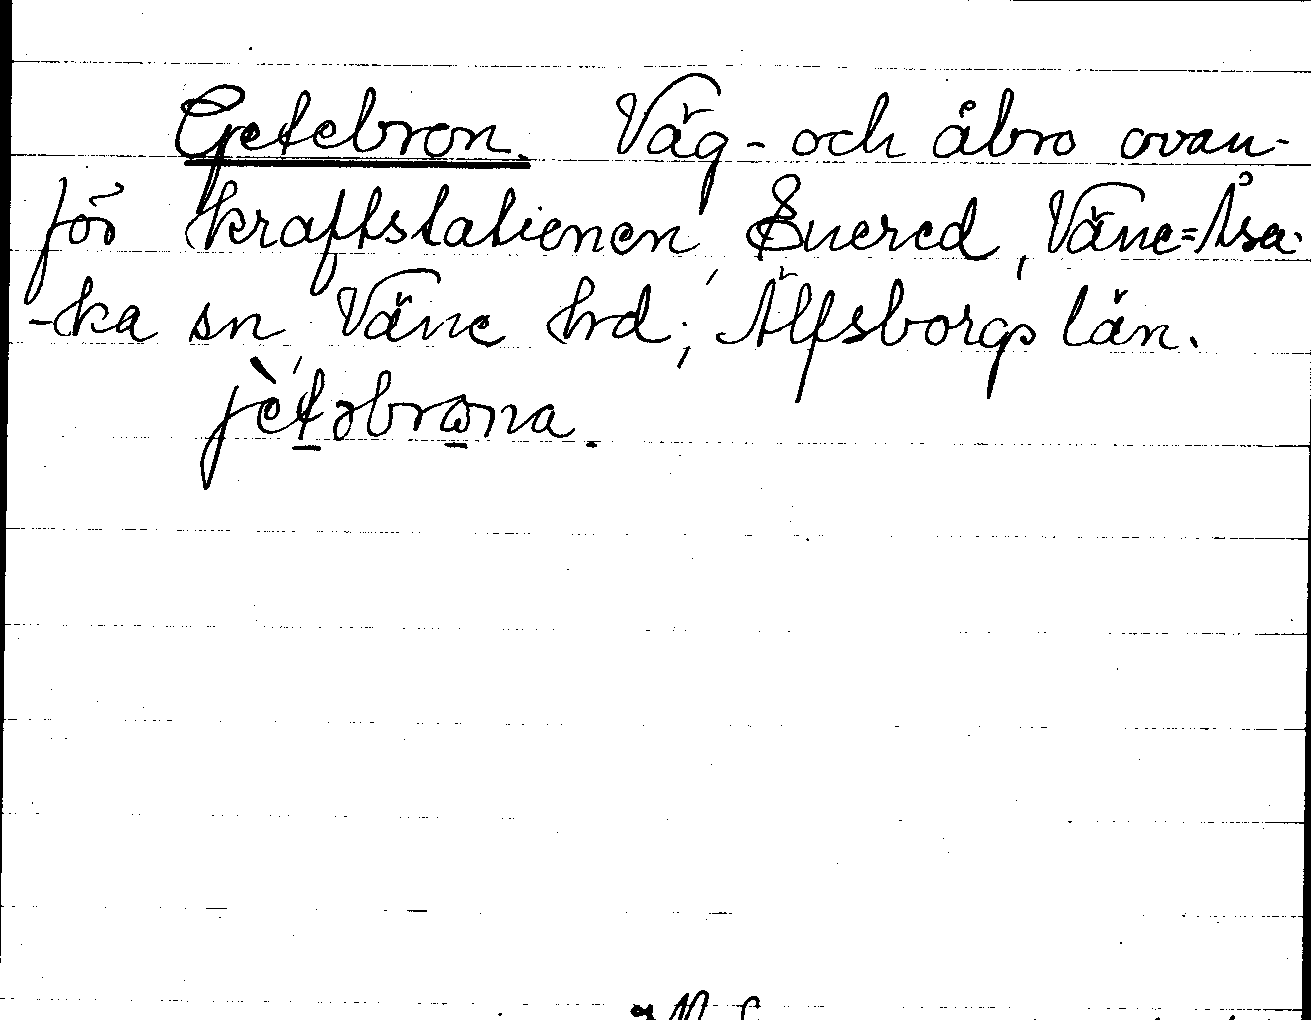 Getebron. Väg- och åbro ovan-
för kraftstationen, Suered, Väne=Åsa-
-ka sn, Väne hd, Älfsborgs län.
jètəbrωna.